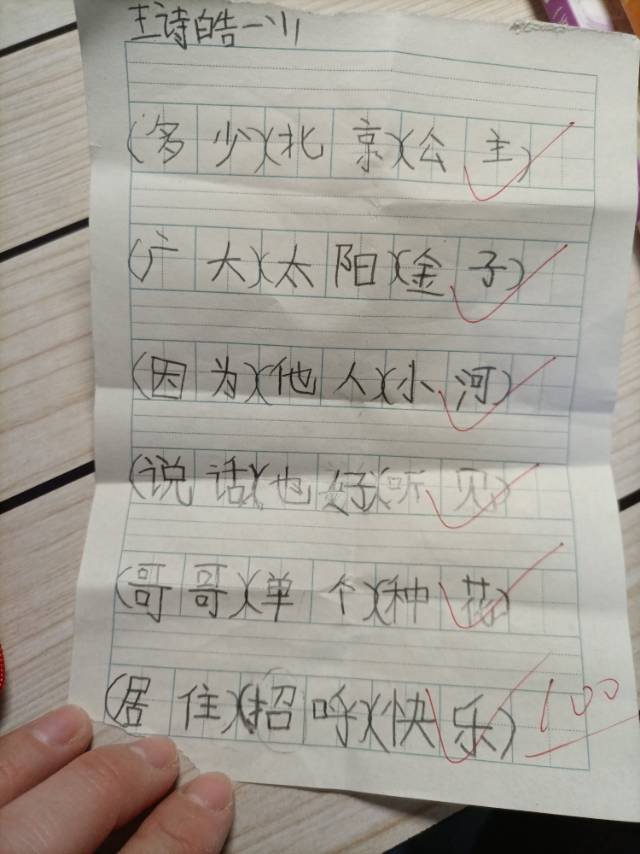 诗皓一
(多少)(北京)(公主)
(广大)(太阳)(金子)
(因为)(他人)(小河)
(说话)(也好)(听见)
(哥哥)(单个)(种花)
(居住)(招呼)(快乐)
100